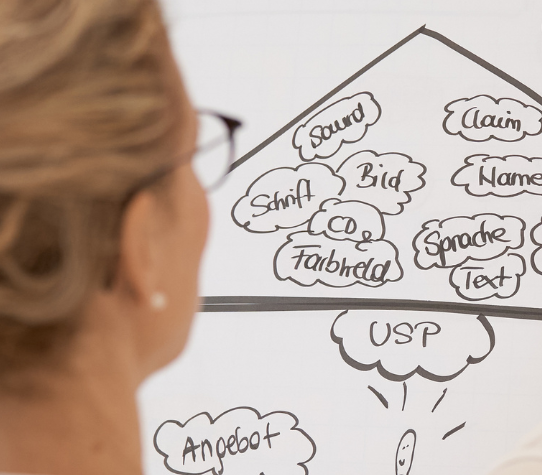 Sound
Claim
Schrift
Bild
Name
CD
Sprache
Farbwelt
Text
USP
Angebot